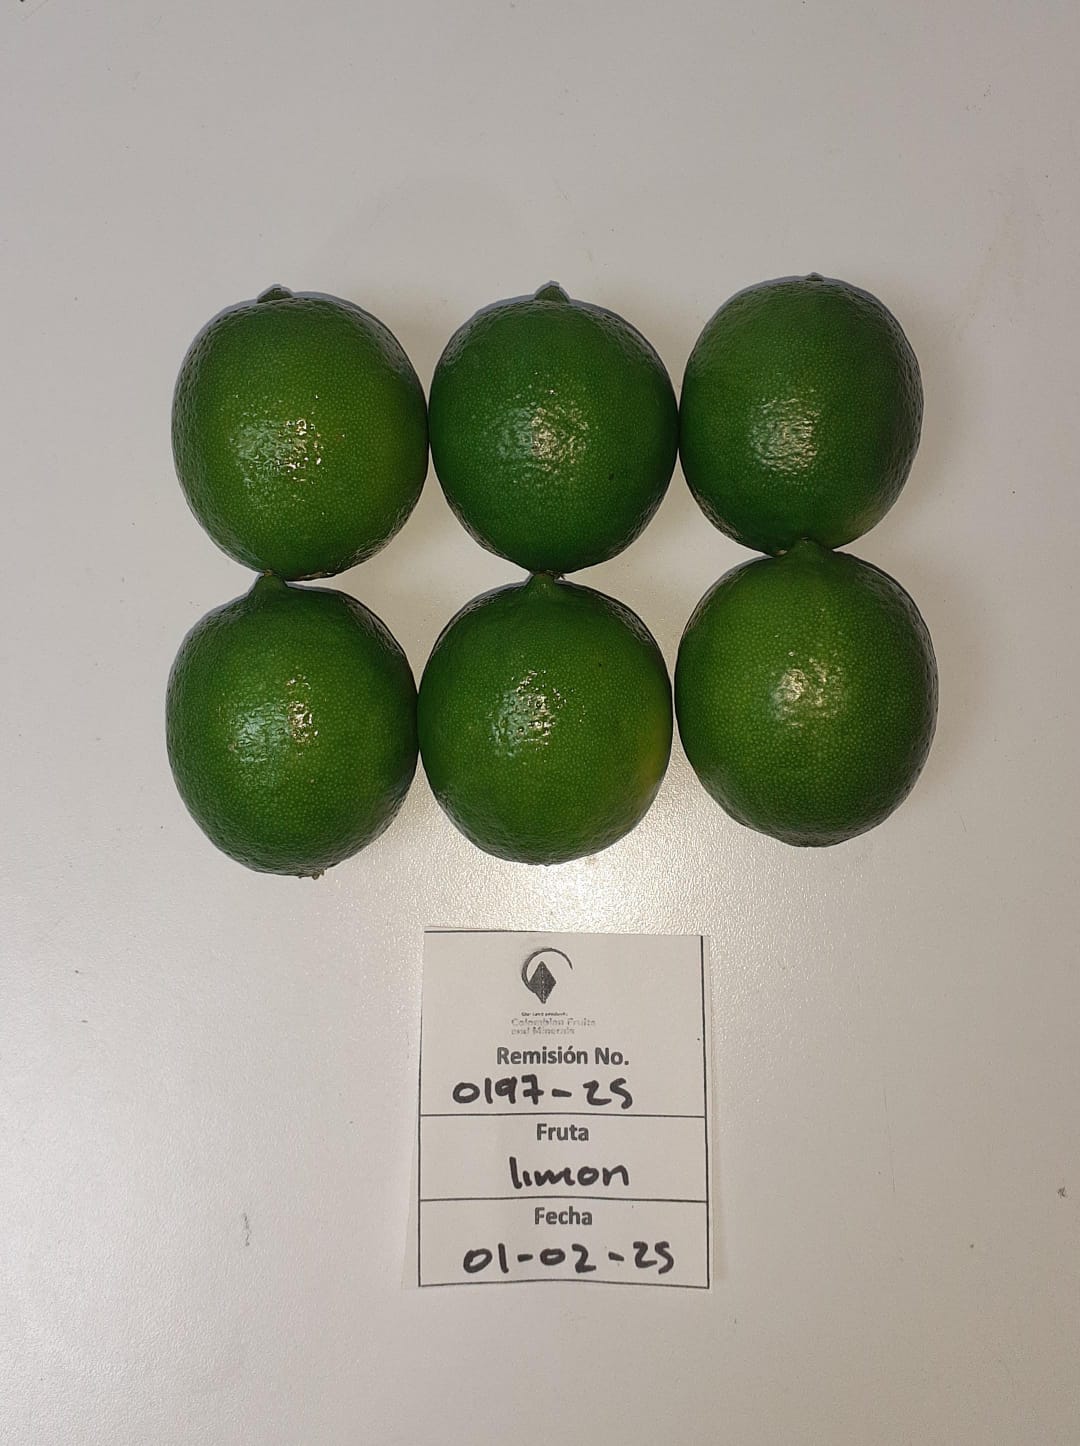 Our land products
Colombian Fruits
and Minerals
Remisión No.
0197-25
Fruta
limon
Fecha
01-02-25